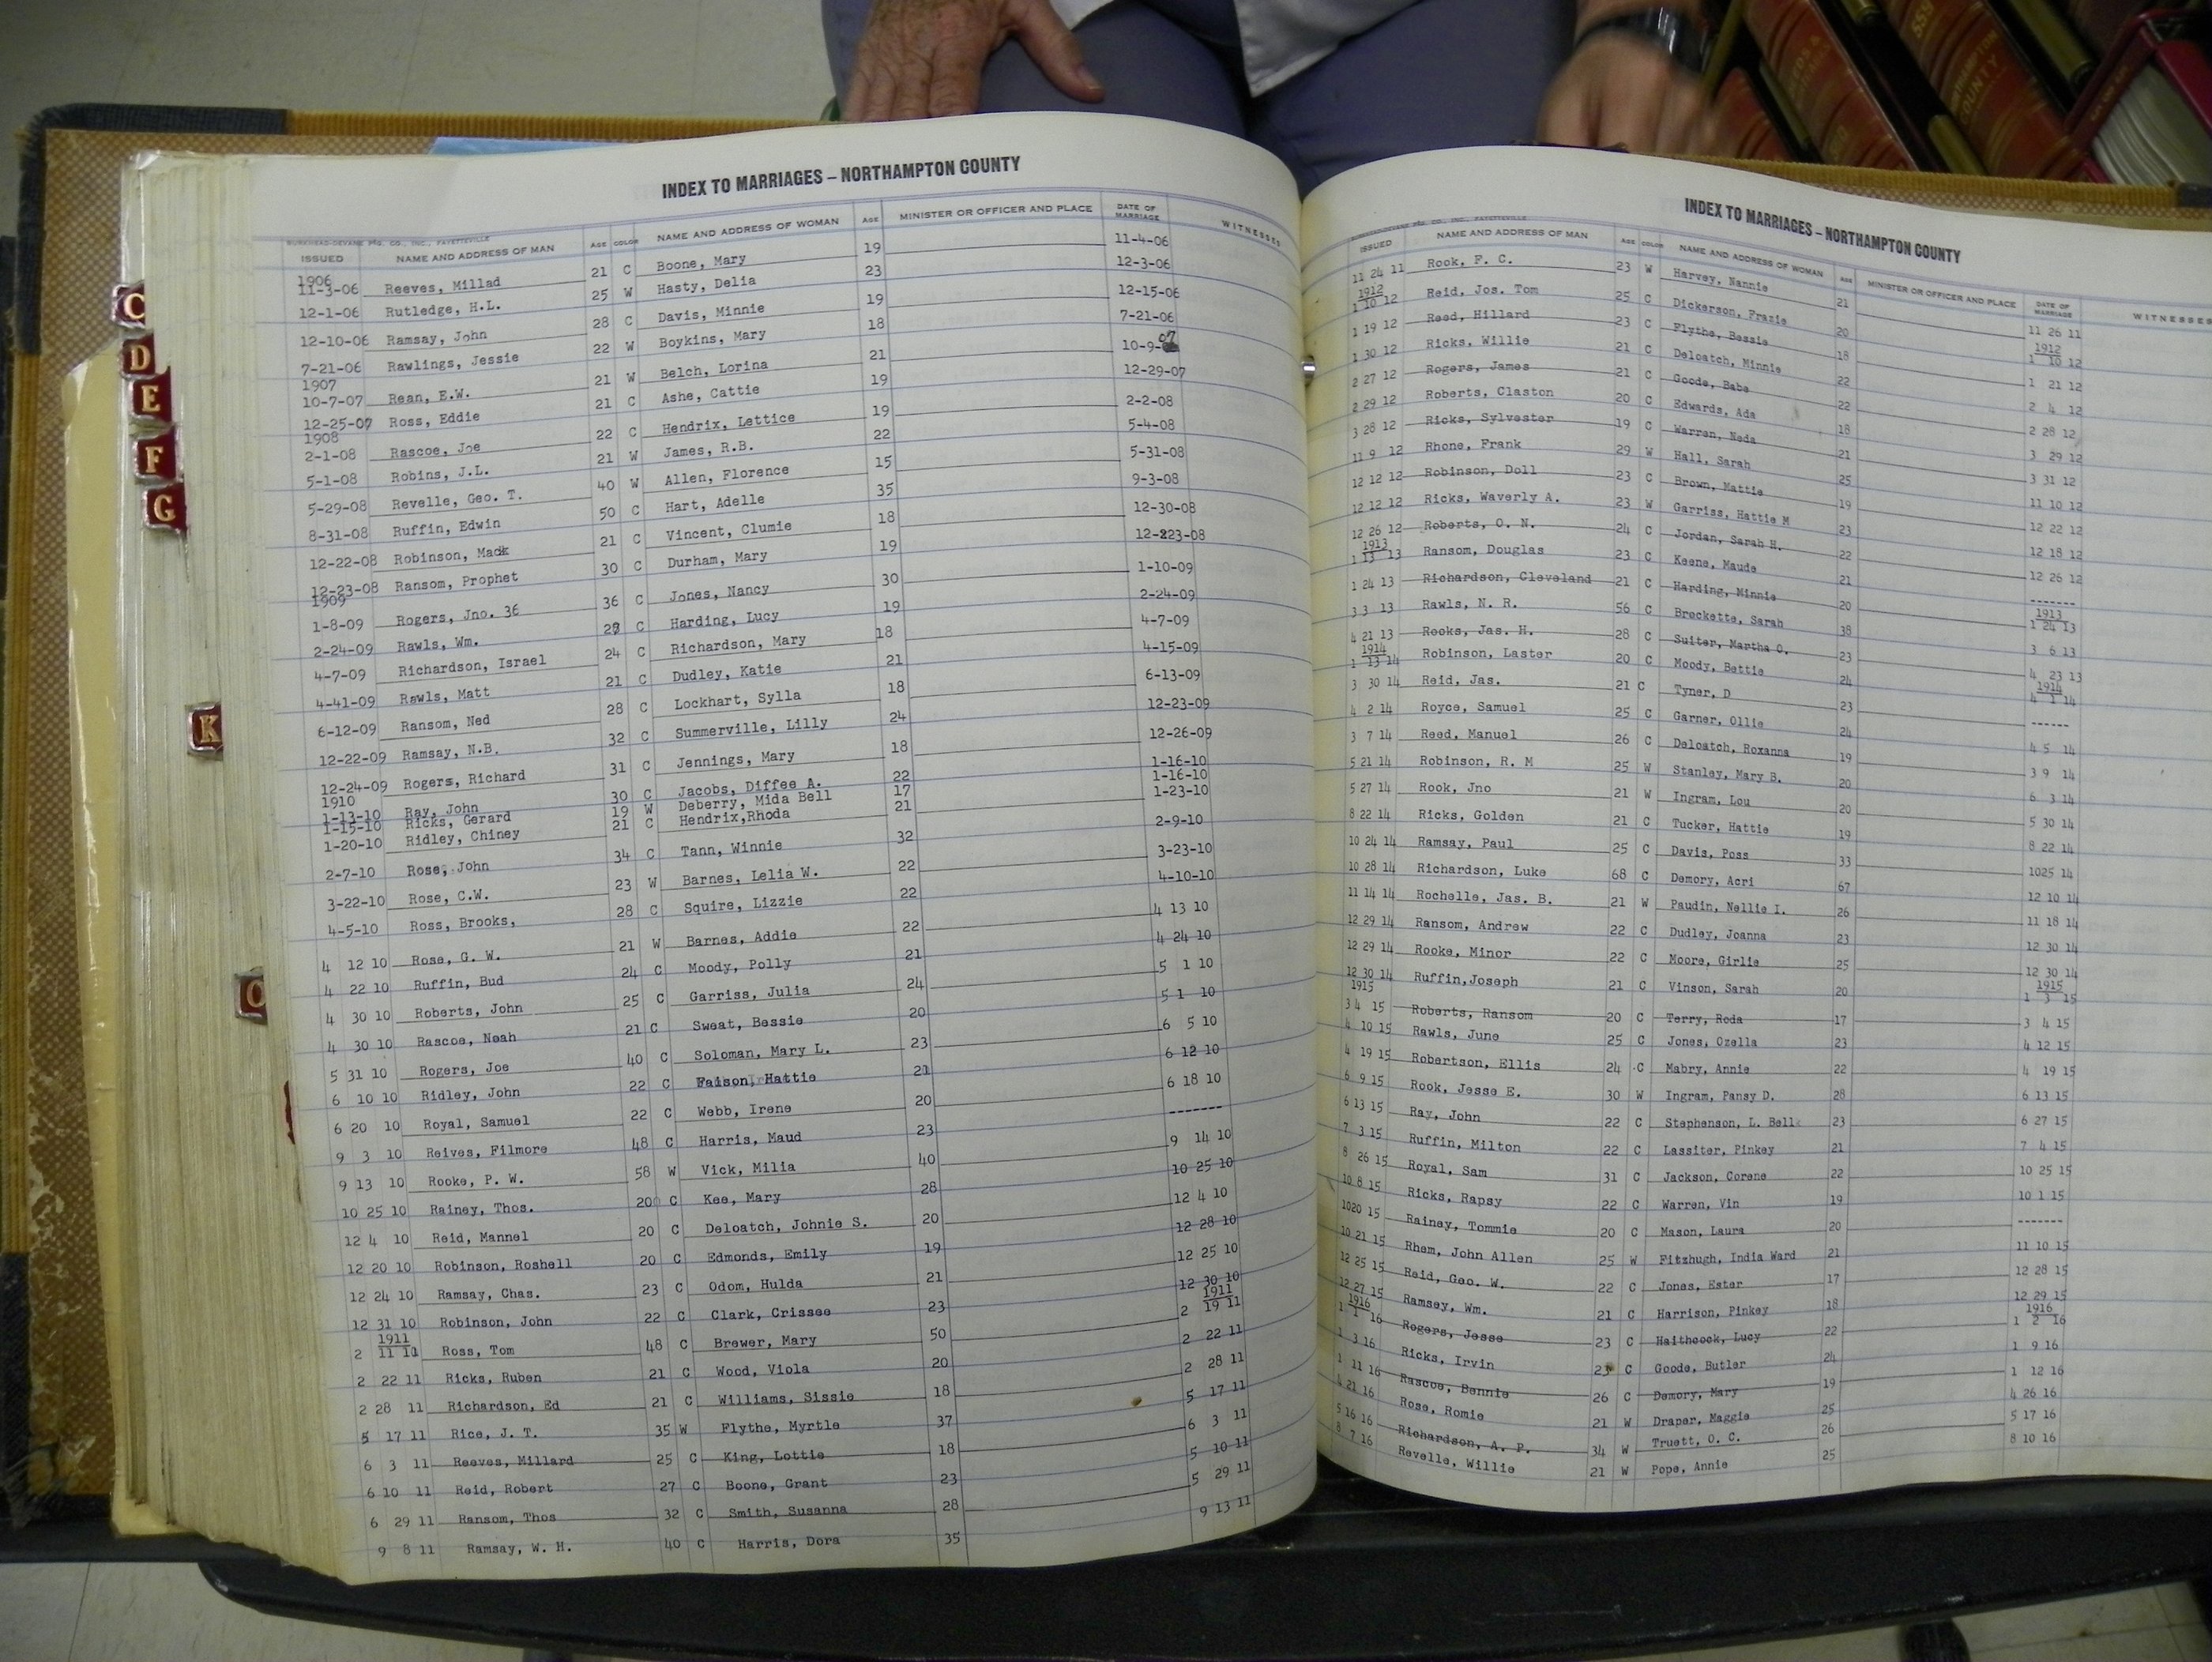 INDEX TO MARRIAGES – NORTHAMPTON COUNTY
BURKHEAD-DEVANE PTG. CO., INC., FAYETTEVILLE
ISSUED NAME AND ADDRESS OF MAN AGE COLOR NAME AND ADDRESS OF WOMAN AGE MINISTER OR OFFICER AND PLACE DATE OF MARRIAGE WITNESSES
1906
11-3-06 Reeves, Millad 21 C Boone, Mary 19 11-4-06
12-1-06 Rutledge, H.L. 25 W Hasty, Delia 23 12-3-06
12-10-06 Ramsay, John 28 C Davis, Minnie 19 12-15-06
7-21-06 Rawlings, Jessie 22 W Boykins, Mary 18 7-21-06
1907
10-7-07 Rean, E.W. 21 W Belch, Lorina 21 10-9-07
12-25-07 Ross, Eddie 21 C Ashe, Cattie 19 12-29-07
1908
2-1-08 Rascoe, Joe 22 C Hendrix, Lettice 19 2-2-08
5-1-08 Robins, J.L. 21 W James, R.B. 22 5-4-08
5-29-08 Revelle, Geo. T. 40 W Allen, Florence 15 5-31-08
8-31-08 Ruffin, Edwin 50 C Hart, Adelle 35 9-3-08
12-22-08 Robinson, Mack 21 C Vincent, Clumie 18 12-30-08
12-23-08 Ransom, Prophet 30 C Durham, Mary 19 12-223-08
1909
1-8-09 Rogers, Jno. 36 36 C Jones, Nancy 30 1-10-09
2-24-09 Rawls, Wm. 28 C Harding, Lucy 19 2-24-09
4-7-09 Richardson, Israel 24 C Richardson, Mary 18 4-7-09
4-41-09 Rawls, Matt 21 C Dudley, Katie 21 4-15-09
6-12-09 Ransom, Ned 28 C Lockhart, Sylla 18 6-13-09
12-22-09 Ramsay, N.B. 32 C Summerville, Lilly 24 12-23-09
12-24-09 Rogers, Richard 31 C Jennings, Mary 18 12-26-09
1910
1-13-10 Ray, John 30 C Jacobs, Diffee A. 22 1-16-10
1-15-10 Ricks, Gerard 19 W Deberry, Mida Bell 17 1-16-10
1-20-10 Ridley, Chiney 21 C Hendrix,Rhoda 21 1-23-10
2-7-10 Rose, John 34 C Tann, Winnie 32 2-9-10
3-22-10 Rose, C.W. 23 W Barnes, Lelia W. 22 3-23-10
4-5-10 Ross, Brooks, 28 C Squire, Lizzie 22 4-10-10
4 12 10 Rose, G. W. 21 W Barnes, Addie 22 4 13 10
4 22 10 Ruffin, Bud 24 C Moody, Polly 21 4 24 10
4 30 10 Roberts, John 25 C Garriss, Julia 24 5 1 10
4 30 10 Rascoe, Noah 21 C Sweat, Bessie 20 5 1 10
5 31 10 Rogers, Joe 40 C Soloman, Mary L. 23 6 5 10
6 10 10 Ridley, John 22 C Faison, Hattie 21 6 12 10
6 20 10 Royal, Samuel 22 C Webb, Irene 20 6 18 10
9 3 10 Reives, Filmore 48 C Harris, Maud 23 -------
9 13 10 Rooke, P. W. 58 W Vick, Milia 40 9 14 10
10 25 10 Rainey, Thos. 20 C Kee, Mary 28 10 25 10
12 4 10 Reid, Mannel 20 C Deloatch, Johnie S. 20 12 4 10
12 20 10 Robinson, Roshell 20 C Edmonds, Emily 19 12 28 10
12 24 10 Ramsay, Chas. 23 C Odom, Hulda 21 12 25 10
12 31 10 Robinson, John 22 C Clark, Crissee 23 12 30 10
1911 1911
2 11 11 Ross, Tom 48 C Brewer, Mary 50 2 19 11
2 22 11 Ricks, Ruben 21 C Wood, Viola 20 2 22 11
2 28 11 Richardson, Ed 21 C Williams, Sissie 18 2 28 11
5 17 11 Rice, J. T. 35 W Flythe, Myrtle 37 5 17 11
6 3 11 Reeves, Millard 25 C King, Lottie 18 6 3 11
6 10 11 Reid, Robert 27 C Boone, Grant 23 5 10 11
6 29 11 Ransom, Thos 32 C Smith, Susanna 28 5 29 11
9 8 11 Ramsay, W. H. 40 C Harris, Dora 35 9 13 11
INDEX TO MARRIAGES – NORTHAMPTON COUNTY
BURKHEAD-DEVANE PTG. CO., INC., FAYETTEVILLE
ISSUED NAME AND ADDRESS OF MAN AGE COLOR NAME AND ADDRESS OF WOMAN AGE MINISTER OR OFFICER AND PLACE DATE OF MARRIAGE WITNESSES
11 24 11 Rook, F. C. 23 W Harvey, Nannie 21 11 26 11
1912 1912
1 10 12 Reid, Jos. Tom 25 C Dickerson, Frazie 20 1 10 12
1 19 12 Reed, Hillard 23 C Flythe, Bessie 18 1 21 12
1 30 12 Ricks, Willie 21 C Deloatch, Minnie 22 2 4 12
2 27 12 Rogers, James 21 C Goode, Babe 22 2 28 12
2 29 12 Roberts, Claston 20 C Edwards, Ada 18 3 29 12
3 28 12 Ricks, Sylvester 19 C Warren, Neda 21 3 31 12
11 9 12 Rhone, Frank 29 W Hall, Sarah 25 11 10 12
12 12 12 Robinson, Doll 23 C Brown, Mattie 19 12 22 12
12 12 12 Ricks, Waverly A. 23 W Garriss, Hattie M 23 12 18 12
12 26 12 Roberts, O. N. 24 C Jordan, Sarah H. 22 12 26 12
1913
1 13 13 Ransom, Douglas 23 C Keene, Maude 21 ------
1913
1 24 13 Richardson, Cleveland 21 C Harding, Minnie 20 1 24 13
3 3 13 Rawls, N. R. 56 C Brockette, Sarah 38 3 6 13
4 21 13 Rooks, Jas. H. 28 C Suiter, Martha O. 23 4 23 13
1914 1914
1 13 14 Robinson, Laster 20 C Moody, Bettie 24 4 1 14
3 30 14 Reid, Jas. 21 C Tyner, D 23 ------
4 2 14 Royce, Samuel 25 C Garner, Ollie 24 4 5 14
3 7 14 Reed, Manuel 26 C Deloatch, Roxanna 19 3 9 14
5 21 14 Robinson, R. M 25 W Stanley, Mary B. 20 6 3 14
5 27 14 Rook, Jno 21 W Ingram, Lou 20 5 30 14
8 22 14 Ricks, Golden 21 C Tucker, Hattie 19 8 22 14
10 24 14 Ramsay, Paul 25 C Davis, Poss 33 1025 14
10 28 14 Richardson, Luke 68 C Demory, Acri 67 12 10 14
11 14 14 Rochelle, Jas. B. 21 W Paudin, Nellie I. 26 11 18 14
12 29 14 Ransom, Andrew 22 C Dudley, Joanna 23 12 30 14
12 29 14 Rooke, Minor 22 C Moore, Girlie 25 12 30 14
12 30 14 Ruffin,Joseph 21 C Vinson, Sarah 20 1915 1 3 15
1915
3 4 15 Roberts, Ransom 20 C Terry, Roda 17 3 4 15
4 10 15 Rawls, June 25 C Jones, Ozella 23 4 12 15
4 19 15 Robertson, Ellis 24 C Mabry, Annie 22 4 19 15
6 9 15 Rook, Jesse E. 30 W Ingram, Pansy D. 28 6 13 15
6 13 15 Ray, John 22 C Stephenson, L. Bell 23 6 27 15
7 3 15 Ruffin, Milton 22 C Lassiter, Pinkey 21 7 4 15
8 26 15 Royal, Sam 31 C Jackson, Corene 22 10 25 15
10 8 15 Ricks, Rapsy 22 C Warren, Vin 19 10 1 15
1020 15 Rainey, Tommie 20 C Mason, Laura 20 -------
10 21 15 Rhem, John Allen 25 W Fitzhugh, India Ward 21 11 10 15
12 25 15 Reid, Geo. W. 22 C Jones, Ester 17 12 28 15
12 27 15 Ramsey, Wm. 21 C Harrison, Pinkey 18 12 29 15
1916 1916
1 1 16 Rogers, Jesse 23 C Haithcock, Lucy 22 1 2 16
1 3 16 Ricks, Irvin 23 C Goode, Butler 24 1 9 16
1 11 16 Rascoe, Bennie 26 C Demory, Mary 19 1 12 16
4 21 16 Rose, Romie 21 W Draper, Maggie 25 4 26 16
5 16 16 Richardson, A. P. 34 W Truett, O. C. 26 5 17 16
8 7 16 Revelle, Willie 21 W Pope, Annie 25 8 10 16
C
D
E
F
G
K
O
COUNTY